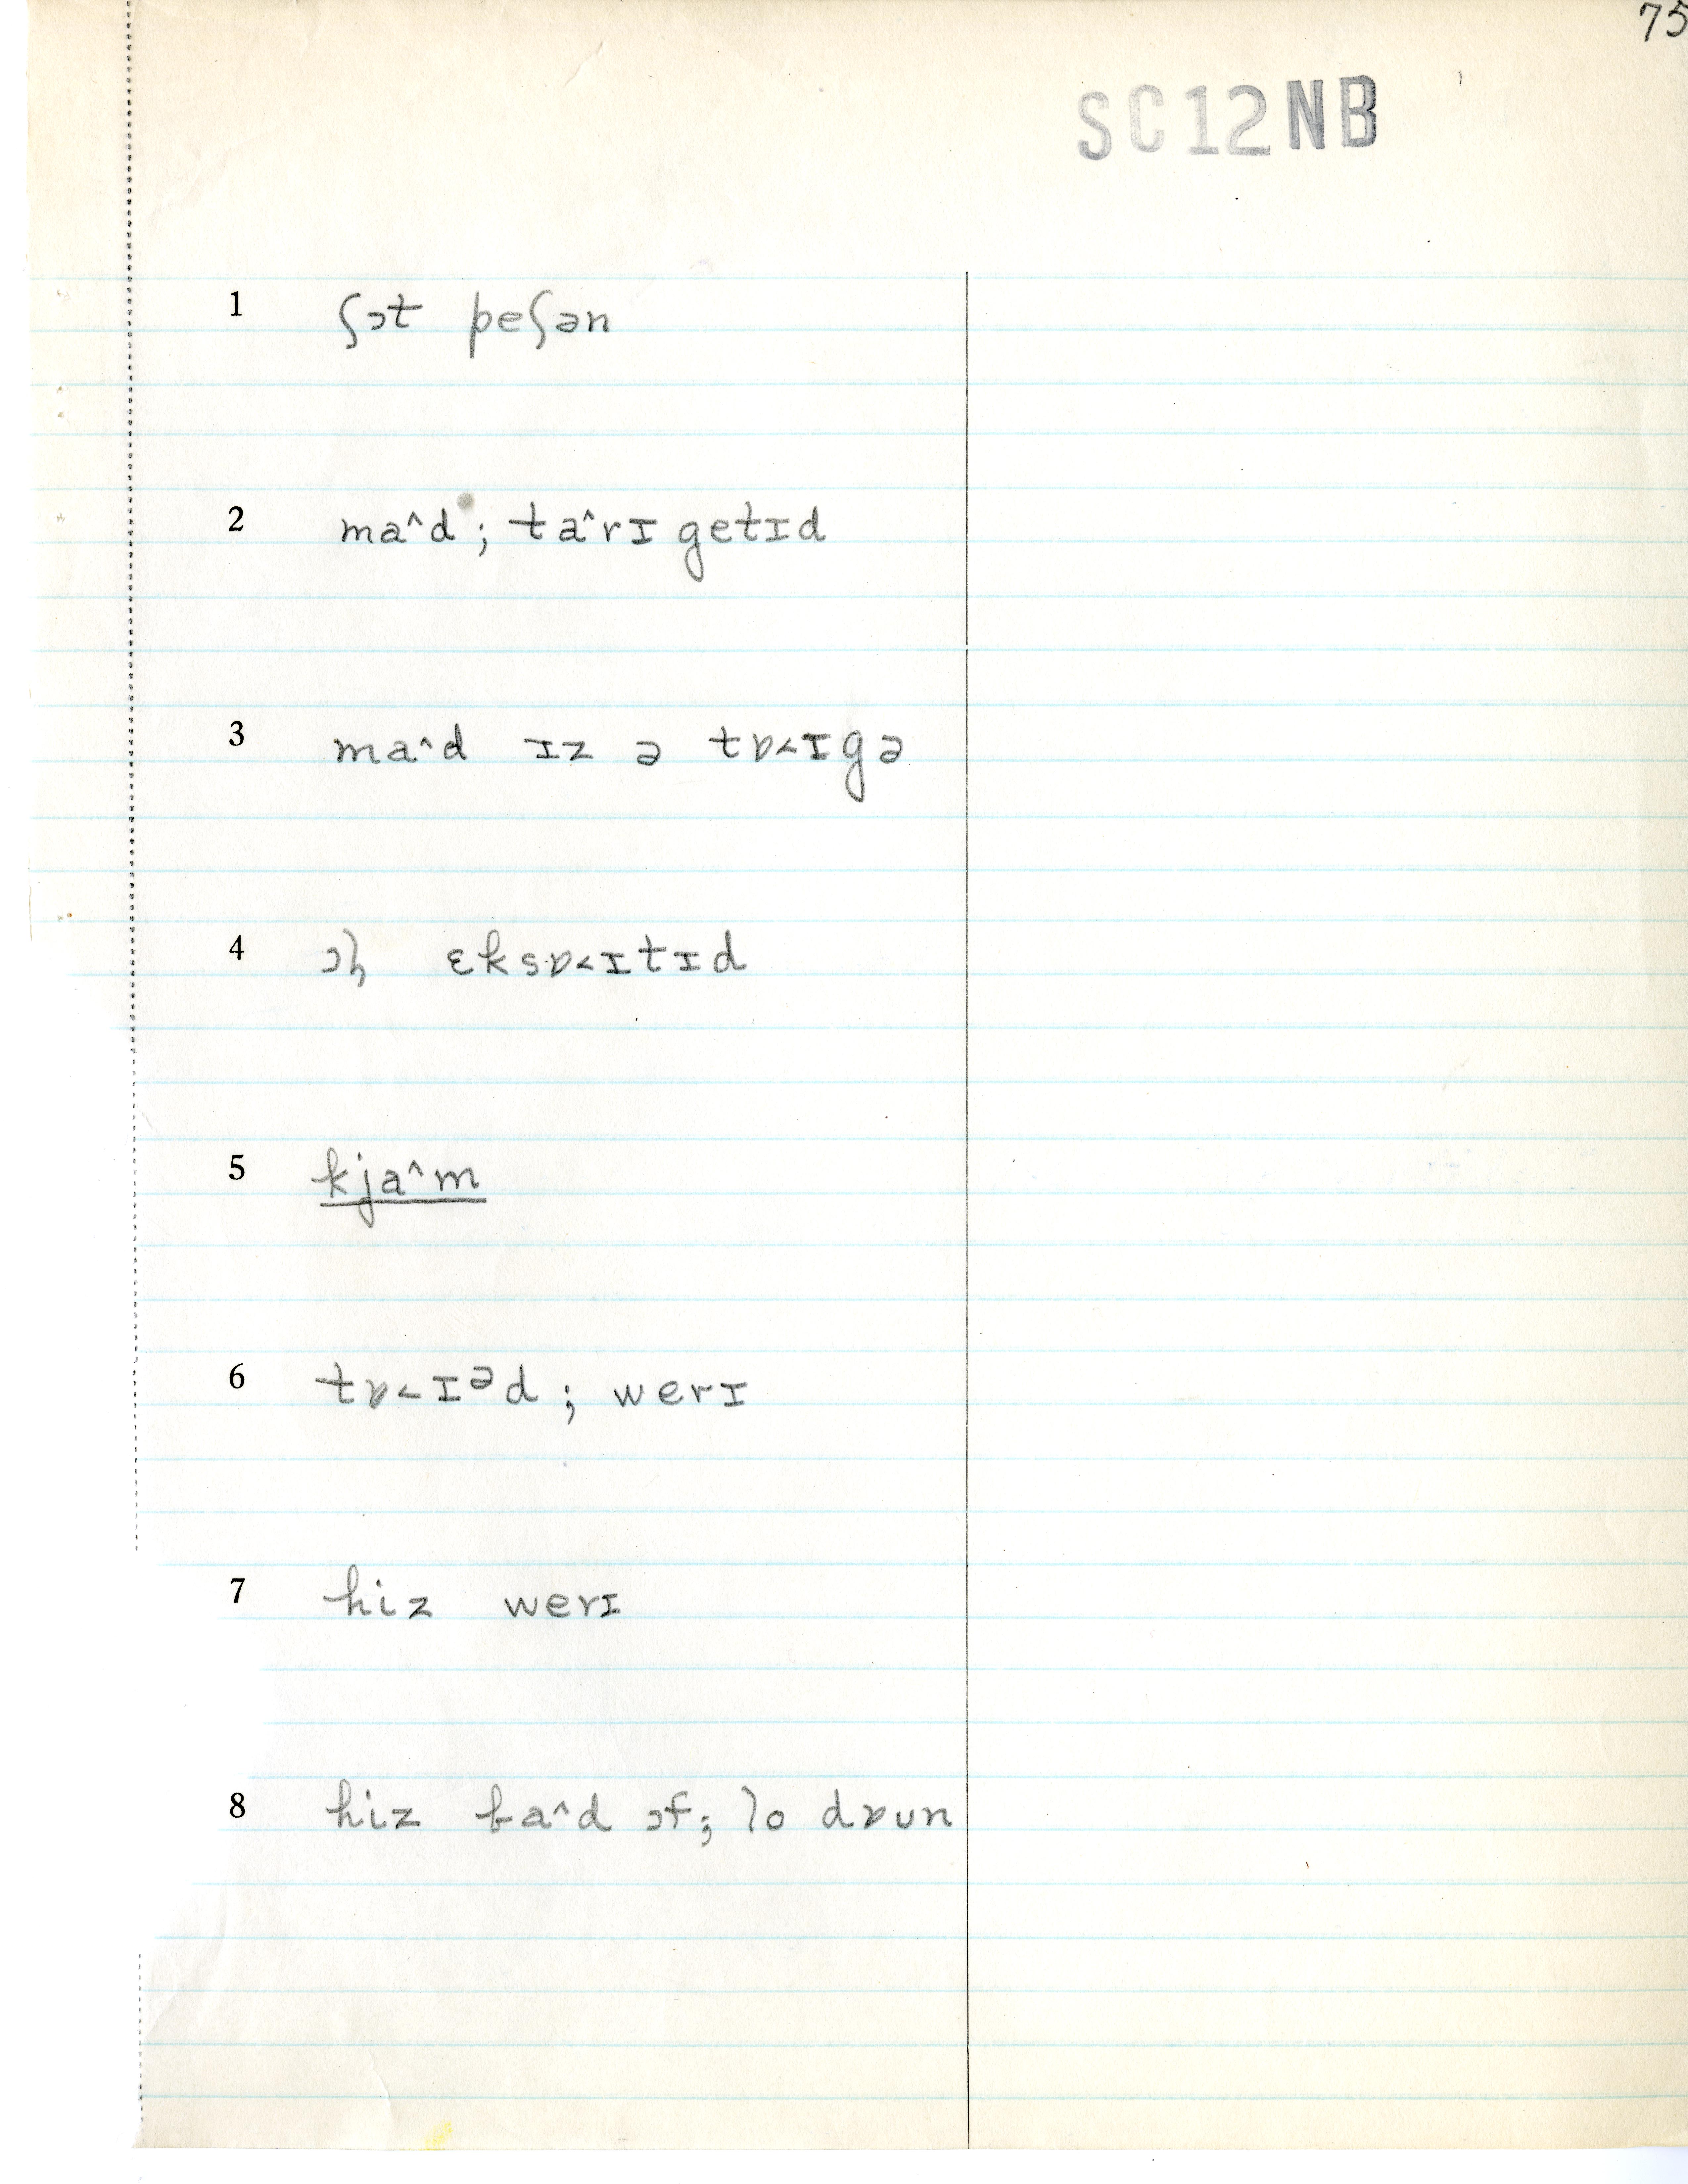 75
SC12NB
1 ʃɔt peʃən
2 ma^d ; ta^rɪ getɪd
3 ma^d ɪz ə tɒ<ɪgə
4 ɔɫ ɛksɒ<ɪtɪd
5 kja^m
6 tɒ<ɪᵊd ; werɪ
7 hiz werɪ
8 hiz ka^d ɔf; lo dɒun